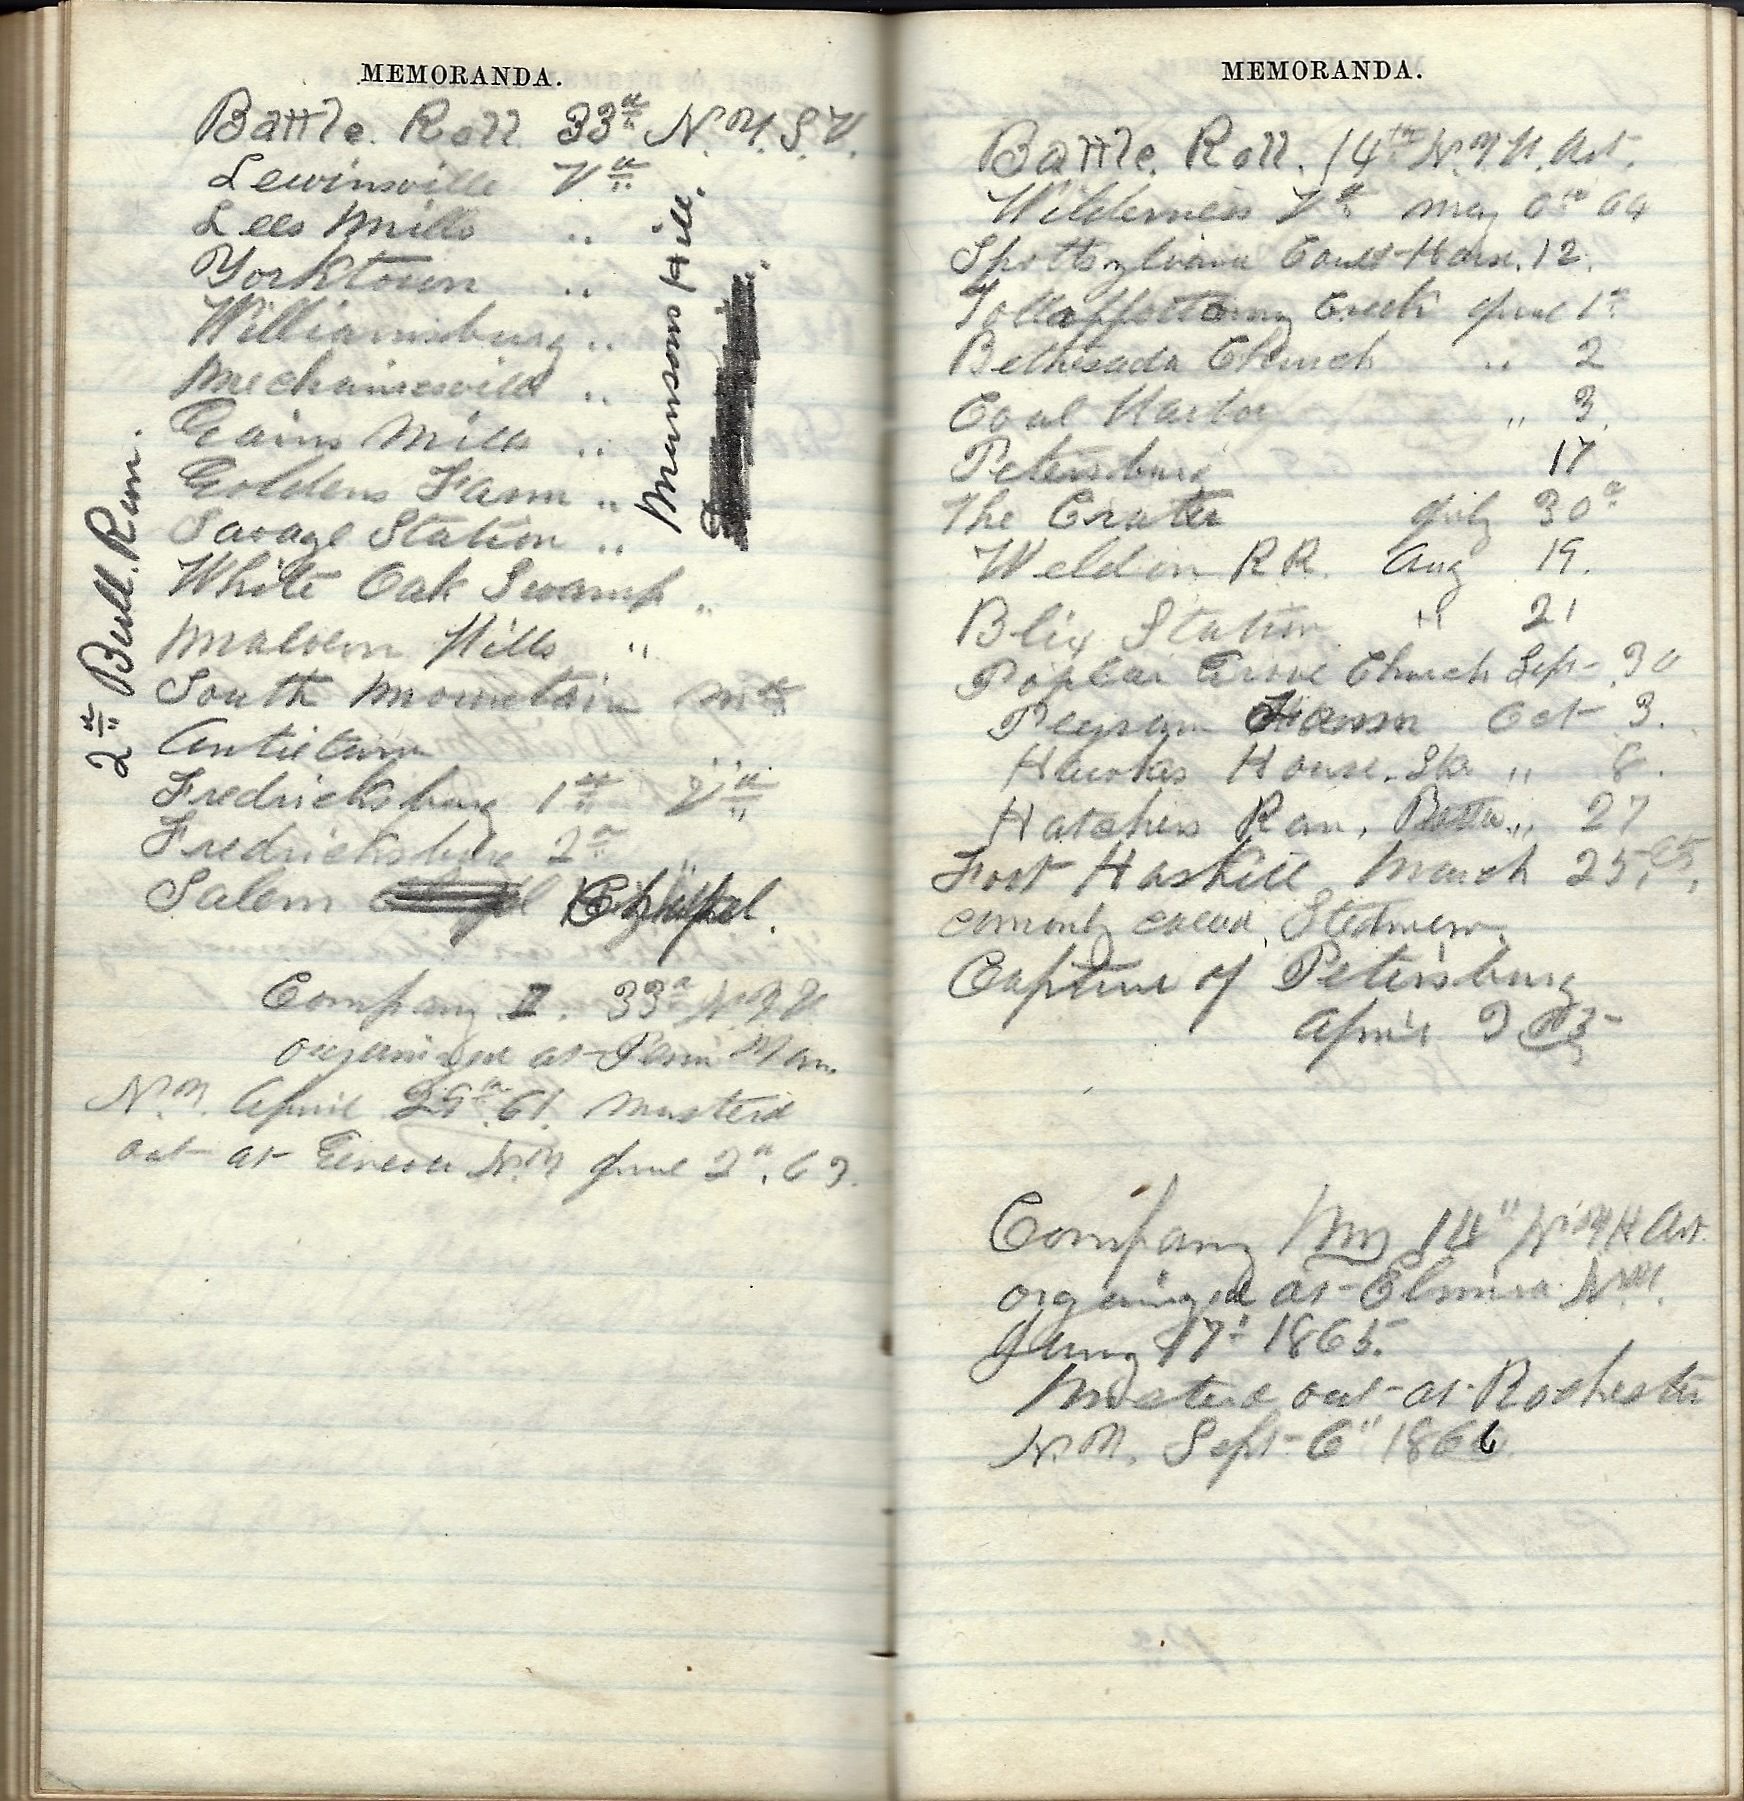 MEMORANDA.
Battle. Roll 33d N.Y.S.V.
Lewinsville Va
Lees Mills "
Yorktown "
Williamsburg "
Mechanicsvill "
Gains Mills "
Goldens Farm "
Savage Station "
White Oak Swamp "
Malvern Hills "
South Mountain Md
Antietam "
Fredricksburg 1st Va
Fredricksburg 2d "
Salem Chappel.
Munsons Hill.
2d Bull. Run.
Company I. 33d N.Y.V.
organized at Penn Yan
N.Y. April 29th 61. Musterd
out at Geneva N.Y June 2d. 63.
MEMORANDA.
Battle. Roll. 14th N.Y.H. Art.
Wilderness Va May 6th 64
Spottsylvania Court House. 12.
Creek June 1st
Bethesada Church " 2
Coal Harbor " 3.
Petersburg 17
The Crater July 30th
Weldon R R. Aug 19.
Blix Station " 21
Poplar Grove Church Sept 30
Peegram Farm Oct 3.
House. " 8.
Hatchers Run, " 27
Fort Haskell March 25. 65.
Stedmen.
Capture of Petersburg
April 3 65
Company M 14" N.Y.H Art.
organized at Elmira N.Y.
17" 1865.
Musterd out at Rochester
N.Y. Sept 6" 1866